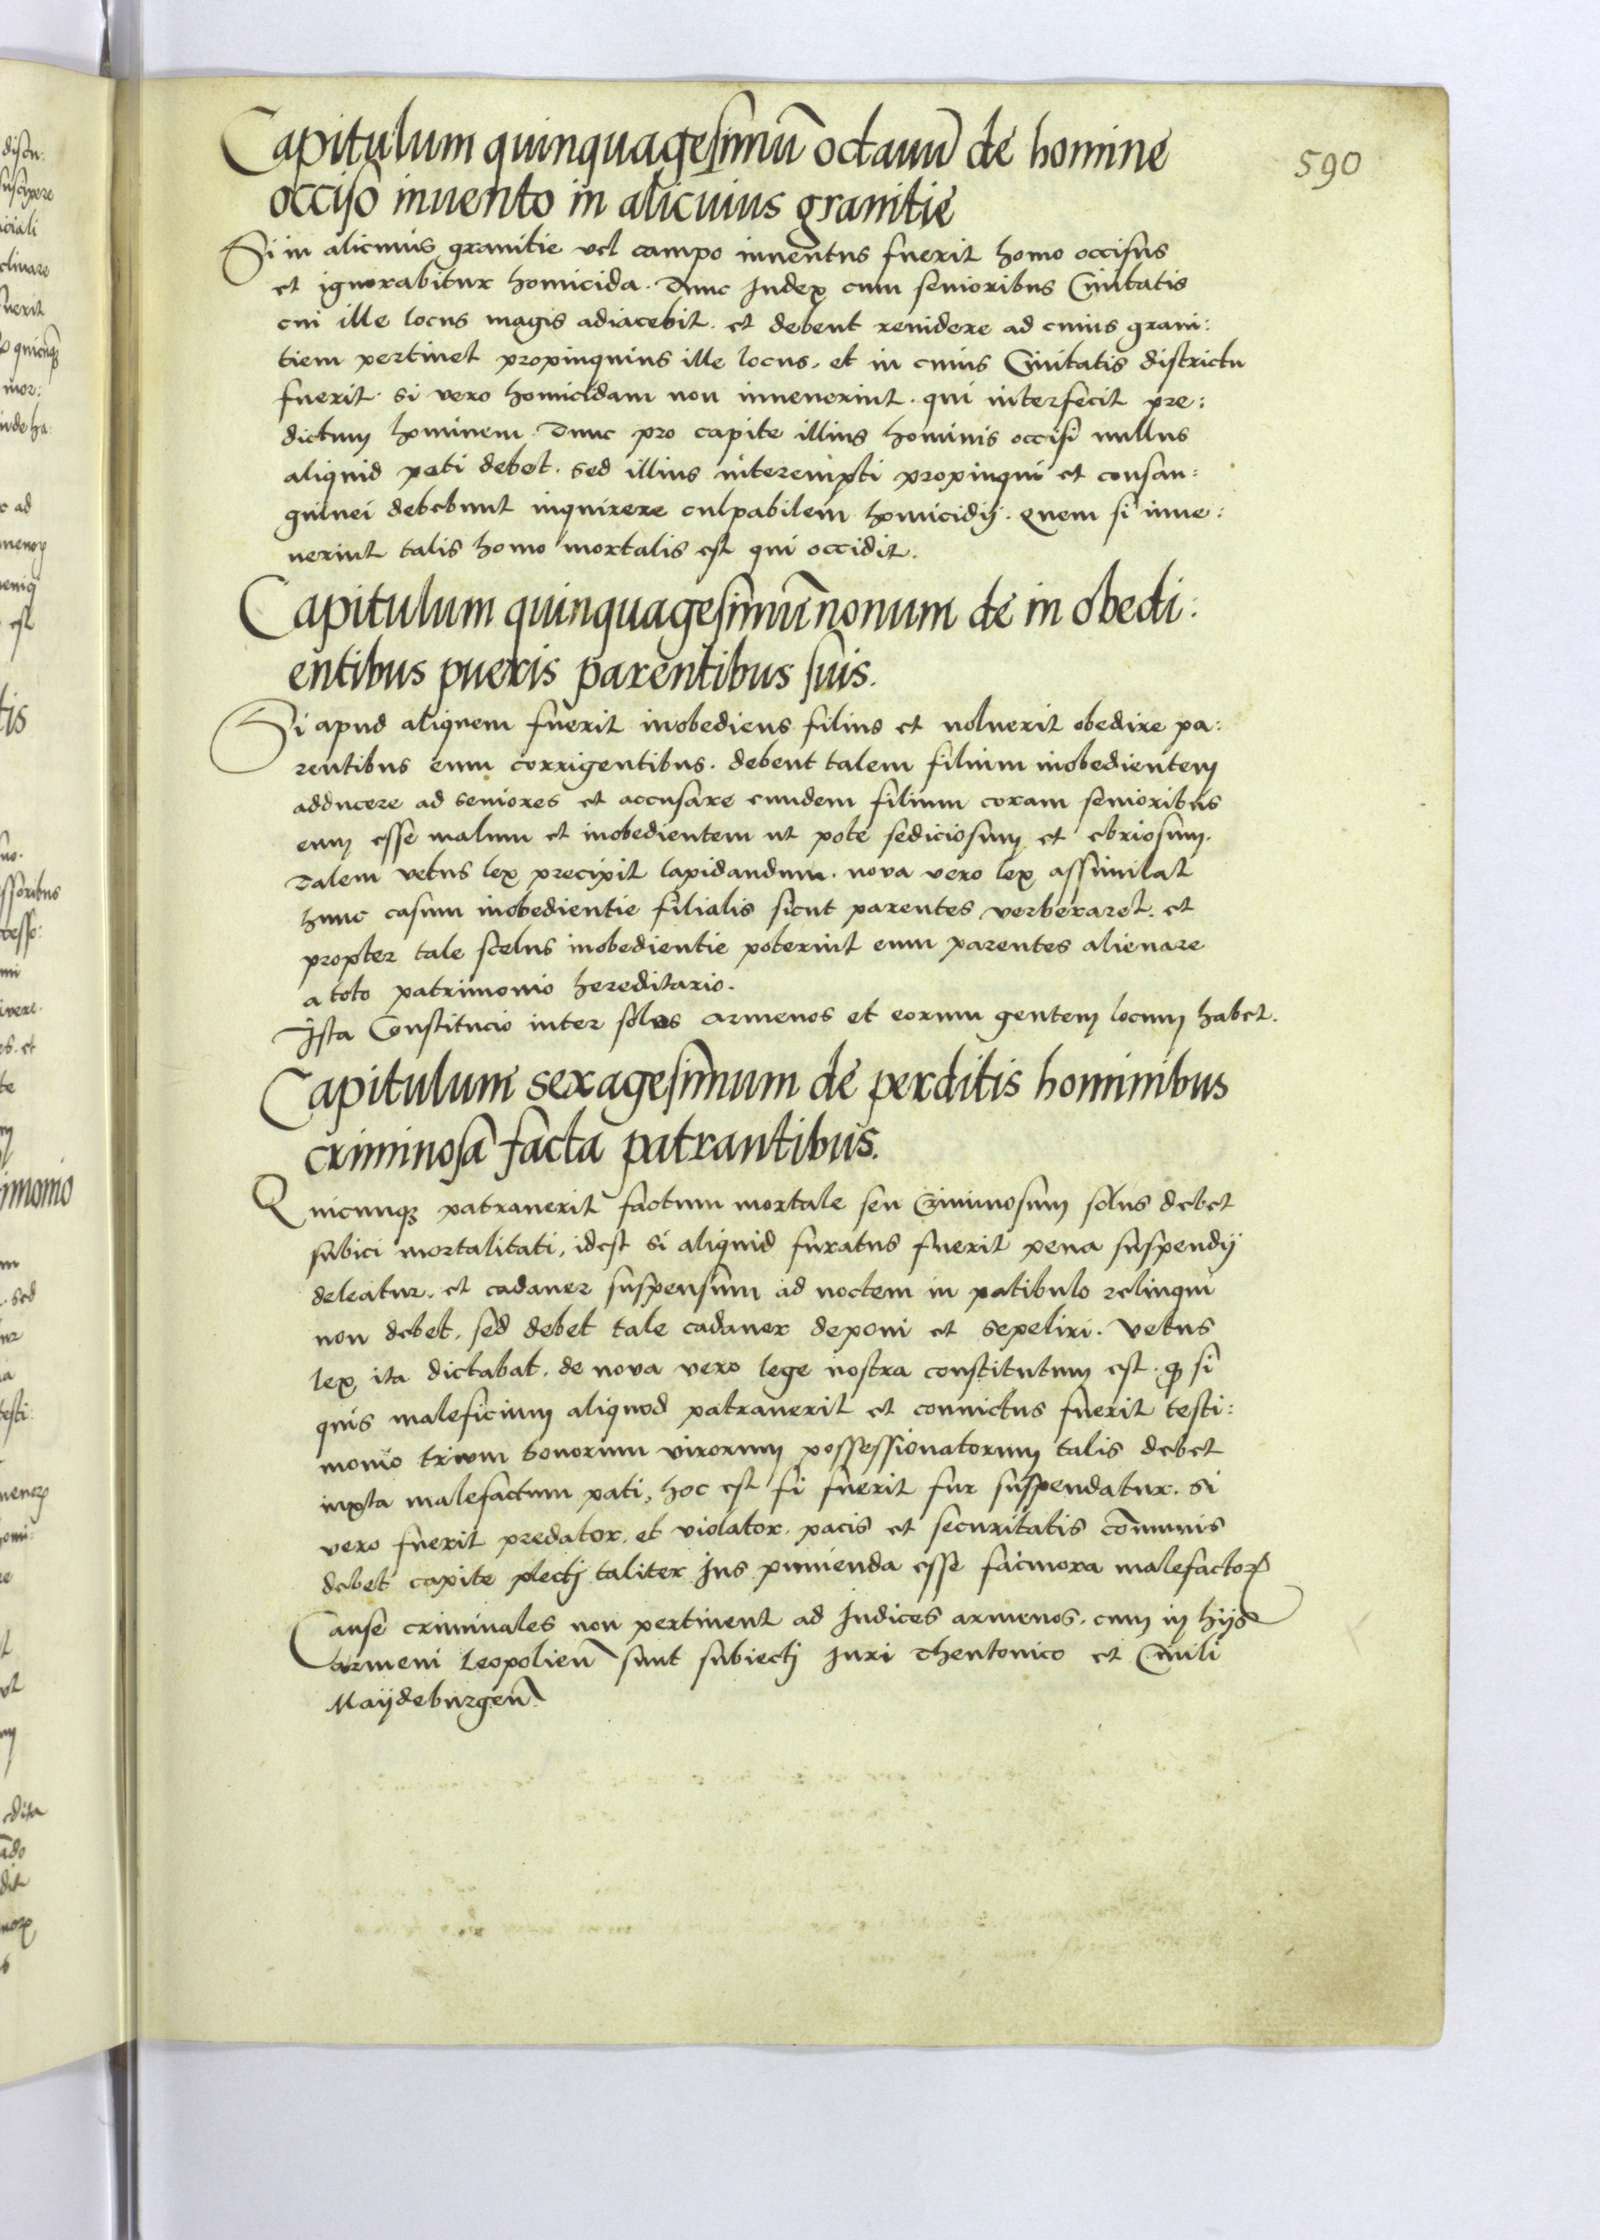 590
Capitulum quinquagesimũ octauũ de homine
occiso inuento in alicuius granitie
Si in alicuius granitie vel campo inuentus fuerit homo occisus
et ignorabitur homicida. Tunc Iudex cum senioribus Ciuitatis
cui ille locus magis adiacebit. et debent reuidere ad cuius grani:
tiem pertinet propinquius ille locus. et in cuius Ciuitatis districtu
fuerit. si vero homicidam non inuenerint. qui interfecit pre:
dictum hominem. Tunc pro capite illius hominis occisi nullus
aliquid pati debet. sed illius interempti propinqui et consan:
guinei debebunt inquirere culpabilem homicidij. Quem si inue:
nerint talis homo mortalis est qui occidit.
Capitulum quinquagesimũ nonum de in obedi:
entibus pueris parentibus suis.
Si apud aliquem fuerit inobediens filius et noluerit obedire pa:
rentibus eum corrigentibus. debent talem filium inobedientem
adducere ad seniores et accusare eundem filium coram senioribus
eum esse malum et inobedientem ut pote sediciosum et ebriosum.
Talem vetus lex precipit lapidandum. nova vero lex assimilat
hunc casum inobedientie filialis sicut parentes verberaret. et
propter tale scelus inobedientie poterint eum parentes alienare
a toto patrimonio hereditario.
Ista Constitucio inter solos armenos et eorum gentem locum habet.
Capitulum sexagesimum de perditis hominibus
criminosa facta patrantibus.
Quicunqꝫ patrauerit factum mortale seu Criminosum solus debet
subici mortalitati, idest si aliquid furatus fuerit pena suspendij
deleatur. et cadauer suspensum ad noctem in patibulo relinqui
non debet. sed debet tale cadauer deponi et sepeliri. Vetus
lex ita dictabat. de nova vero lege nostra constitutum est. ꝙ si
quis maleficium aliquod patrauerit et conuictus fuerit testi:
monio trium bonorum virorum possessionatorum talis debet
iuxta malefactum pati, hoc est si fuerit fur suspendatur. si
vero fuerit predator. et violator. pacis et securitatis cõmunis
debet capite plecti taliter Ius punienda esse facinora malefactorꝝ
Cause criminales non pertinent ad Iudices armenos. cum in hijs
armeni Leopolieñ sunt subiecti Iuri Theutonico et Ciuili
Maijdeburgeñ.